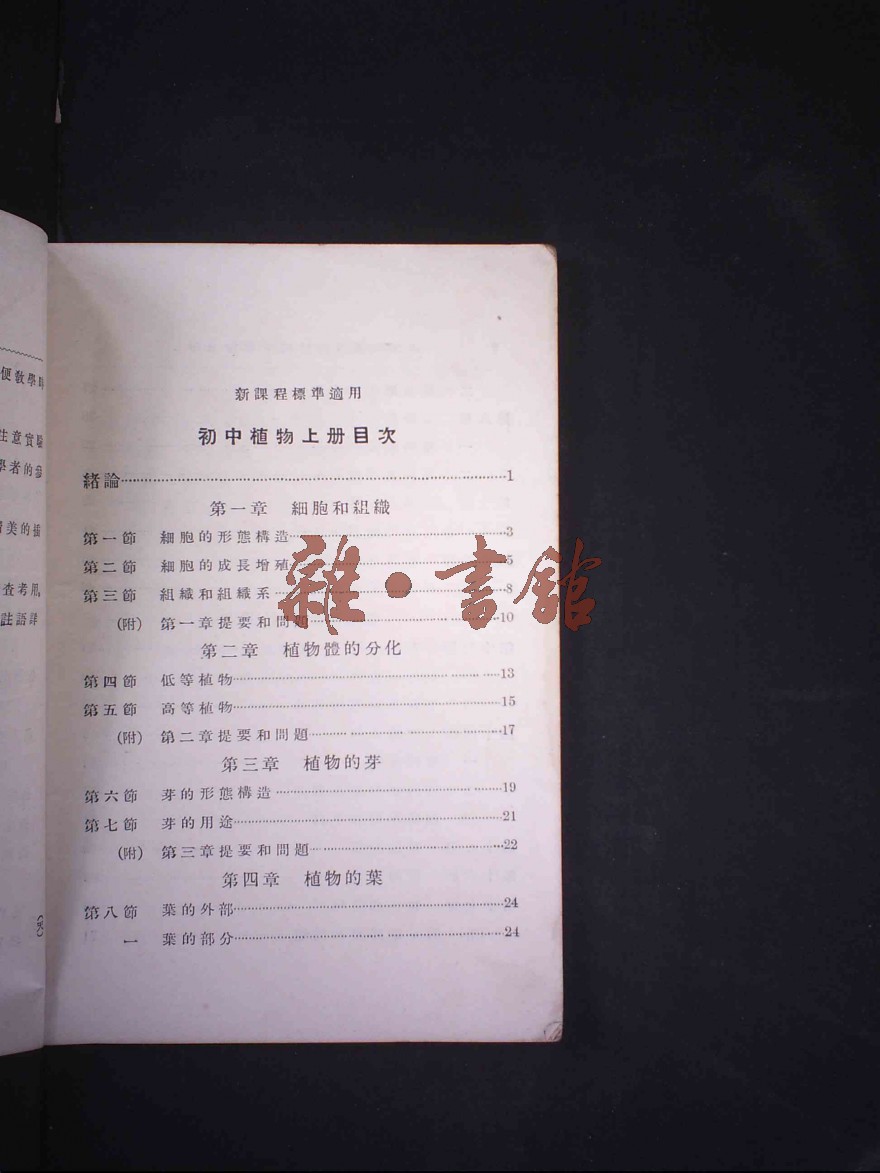 便敎學時
生意實驗
學者的參
精美的插
查考用,
註語詳
新課程標準適用
初中植物上册目次
緒論……1
第一章 細胞和組織
第一節 細胞的形態構造……3
第二節 細胞的成長增殖……5
第三節 組織和組織系……8
(附) 第一章提要和問題……10
第二章 植物體的分化
第四節 低等植物……13
第五節 高等植物……15
(附) 第二章提要和問題……17
第三章 植物的芽
第六節 芽的形態構造……19
第七節 芽的用途……21
(附) 第三章提要和問題……22
第四章 植物的葉
第八節 葉的外部……24
一 葉的部分……24
雜·書館